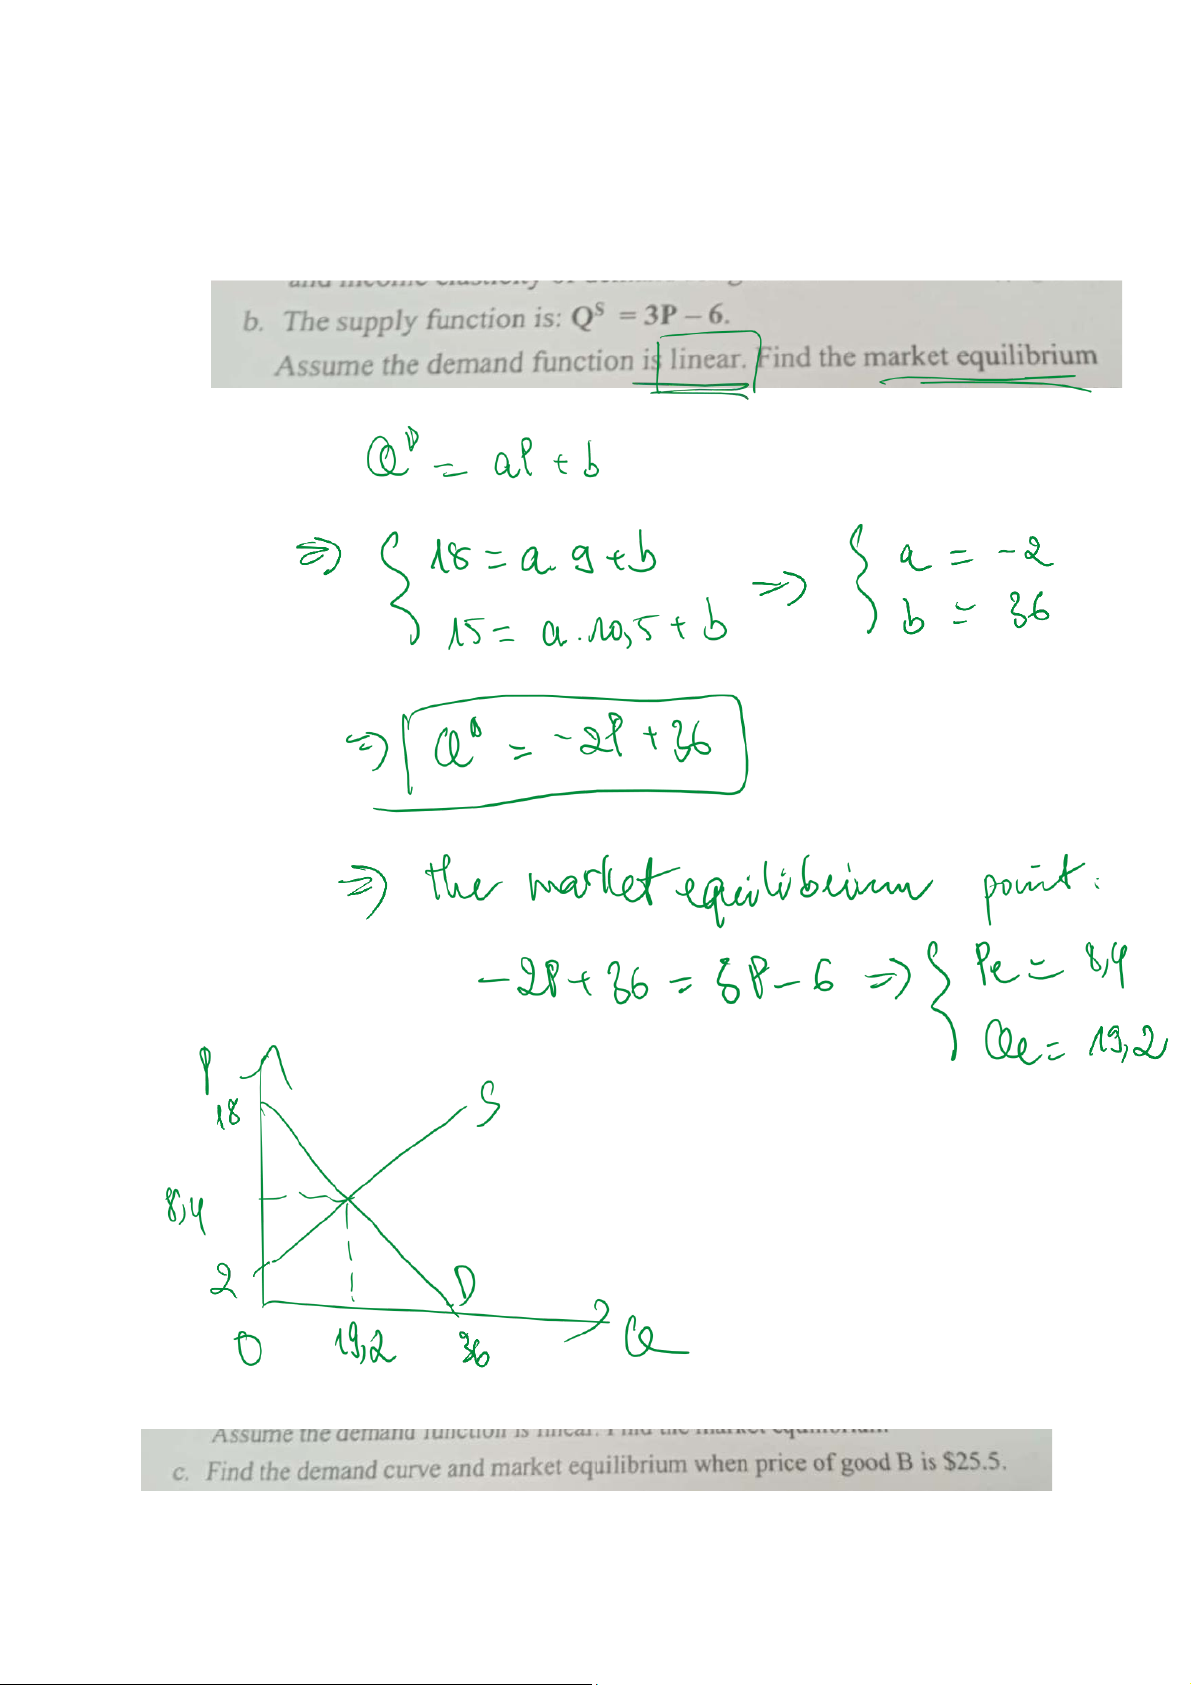 b. The supply function is: Qˢ = 3P – 6.
Assume the demand function is linear. Find the market equilibrium
Qᴰ = aP + b
=> { 18 = a. 9 + b
15 = a. 10,5 + b
=> { a = -2
b = 36
=> Qᴰ = -2P + 36
=> the market equilibrium point:
-2P + 36 = 3P - 6 => { Pe = 8,4
Qe = 19,2
P
18
S
8,4
2
D
0
19,2
36
Q
Assume the demand function is linear. Find the market equilibrium.
c. Find the demand curve and market equilibrium when price of good B is $25.5.